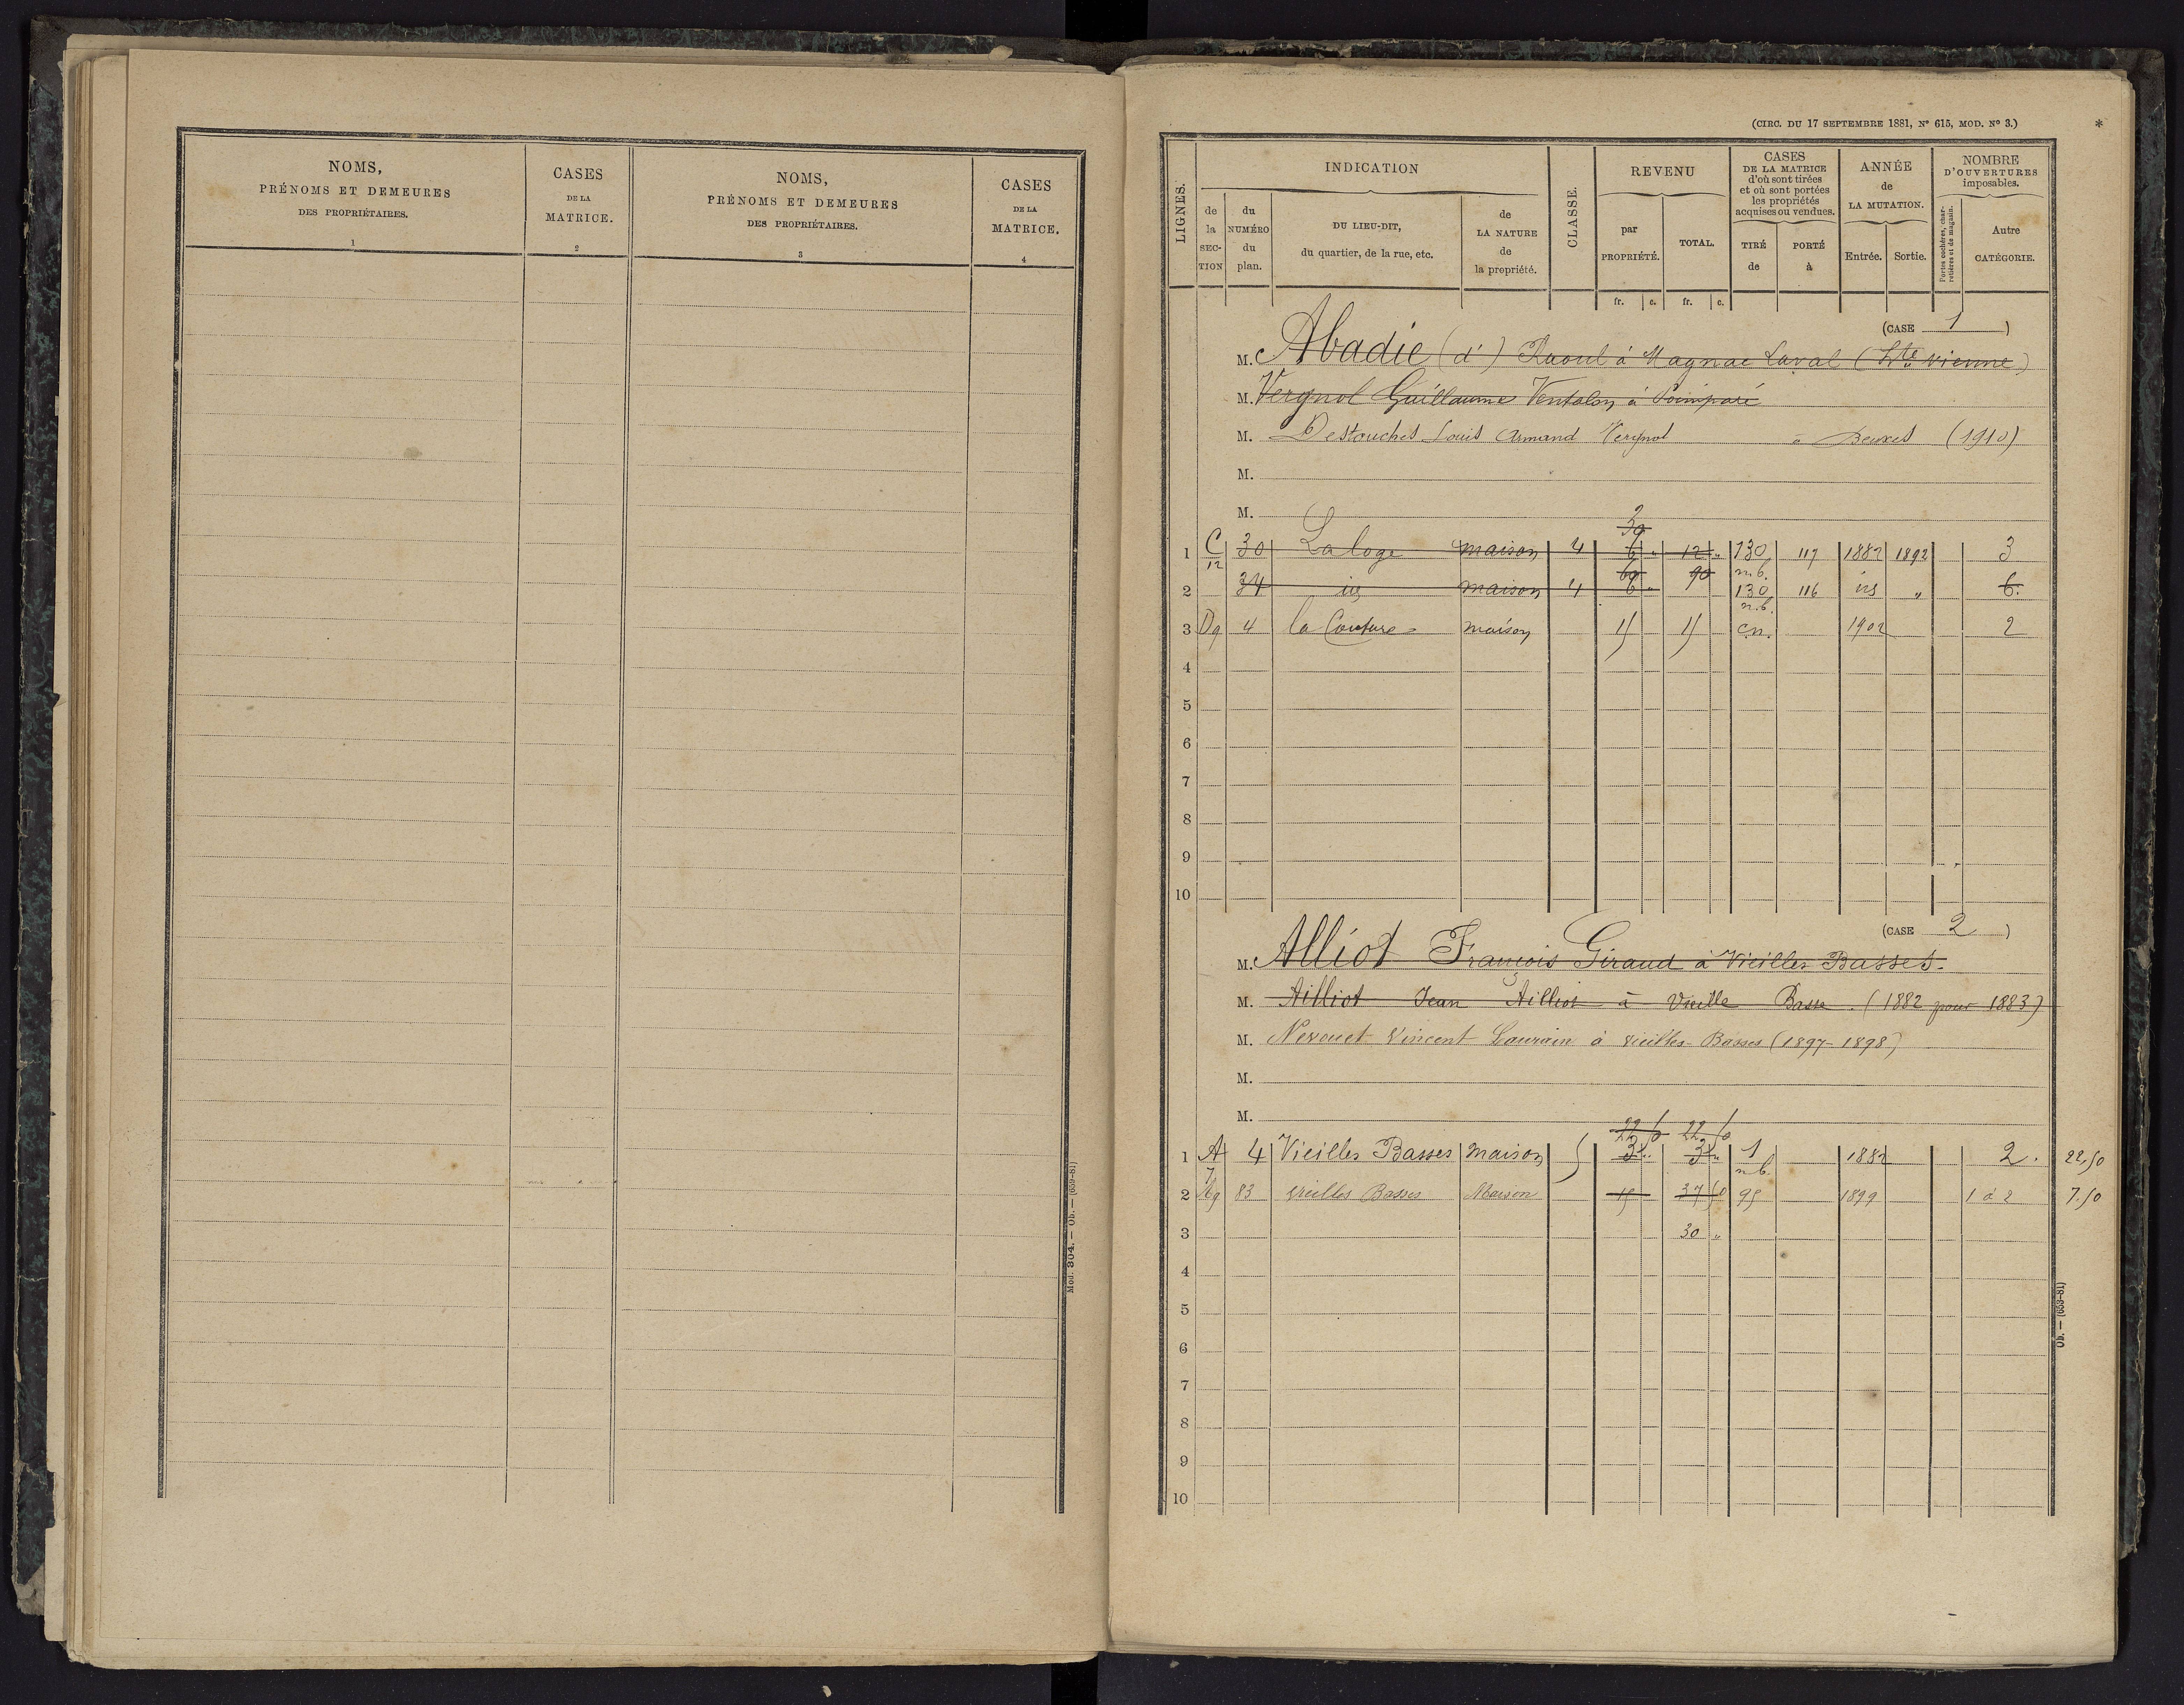 NOMS,
PRÉNOMS ET DEMEURES
DES PROPRIÉTAIRES.
1
CASES
DE LA
MATRICE.
2
NOMS,
PRÉNOMS ET DEMEURES
DES PROPRIÉTAIRES.
3
CASES
DE LA
MATRICE.
4
Mod. 304. — Ob. — (659-81)
(CIRC. DU 17 SEPTEMBRE 1881, N° 615, MOD. N° 3.)
*
LIGNES.
INDICATION
de la SECTION
du NUMÉRO du plan.
DU LIEU-DIT,
du quartier, de la rue, etc.
de LA NATURE de la propriété.
CLASSE.
REVENU
par PROPRIÉTÉ.
TOTAL.
CASES
DE LA MATRICE
d'où sont tirées
et où sont portées
les propriétés
acquises ou vendues.
TIRÉ de
PORTÉ à
ANNÉE
de
LA MUTATION.
Entrée.
Sortie.
NOMBRE
D'OUVERTURES
imposables.
Portes cochères, charretières et de magasin.
Autre
CATÉGORIE.
fr. c. fr. c.
(CASE 1 )
M. Abadie (d') Raoul à Magnac Laval (Hte Vienne)
M. Vergnol Guillaume Ventalon à
M. Destouches Louis Armand Vergnol à (1910)
M.
M.
30
1 C 30 La loge maison 4 6 " 12 " 130 117 1882 1892 3
12 60 90 n.b.
2 34 id maison 4 6 " 130 116 id " 6.
n.b.
3 Dg 4 la Couture maison 15 15 c.n. 1902 2
4
5
6
7
8
9
10
(CASE 2 )
M. Alliot François Giraud à Vieilles Basses.
M. Ailliot Jean Ailliot à Vieille Basse. (1882 pour 1883)
M. Nerouet Vincent Laurain à vieilles-Basses (1897-1898)
M.
M.
22 50 22 50
1 A 4 Vieilles Basses maison 5 3 " 3 " 1 1882 2. 22,50
n.b.
2 83 vieilles Basses Maison 15 37 50 95 1899 1 à 2 7.50
3 30 "
4
5
6
7
8
9
10
Ob. — (659-81)